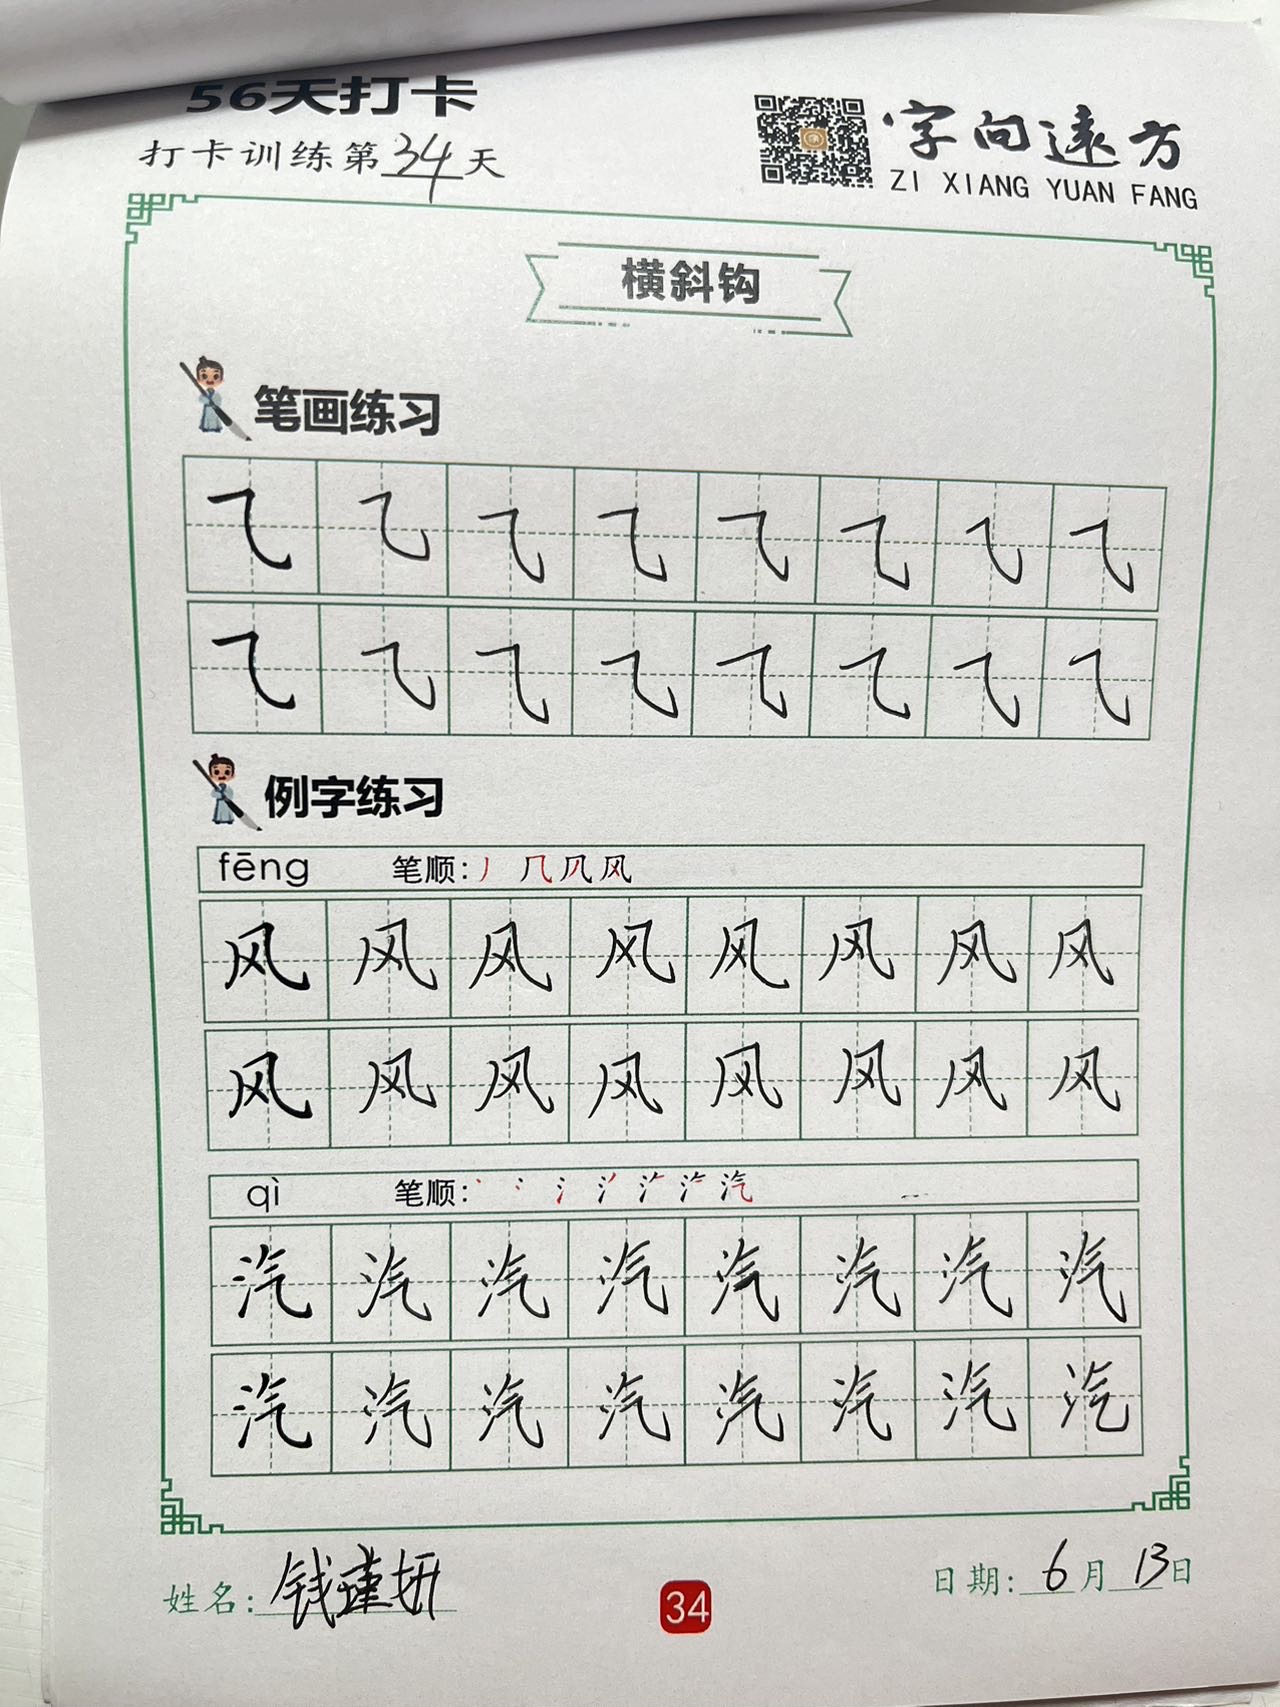 56天打卡
打卡训练第34天
字向远方
ZI XIANG YUAN FANG
横斜钩
笔画练习
⺄ ⺄ ⺄ ⺄ ⺄ ⺄ ⺄ ⺄
⺄ ⺄ ⺄ ⺄ ⺄ ⺄ ⺄ ⺄
例字练习
fēng 笔顺: 丿 几 风 风
风 风 风 风 风 风 风 风
风 风 风 风 风 风 风 风
qì 笔顺: 汽
汽 汽 汽 汽 汽 汽 汽 汽
汽 汽 汽 汽 汽 汽 汽 汽
姓名: 钱瑾妍
34
日期: 6月13日